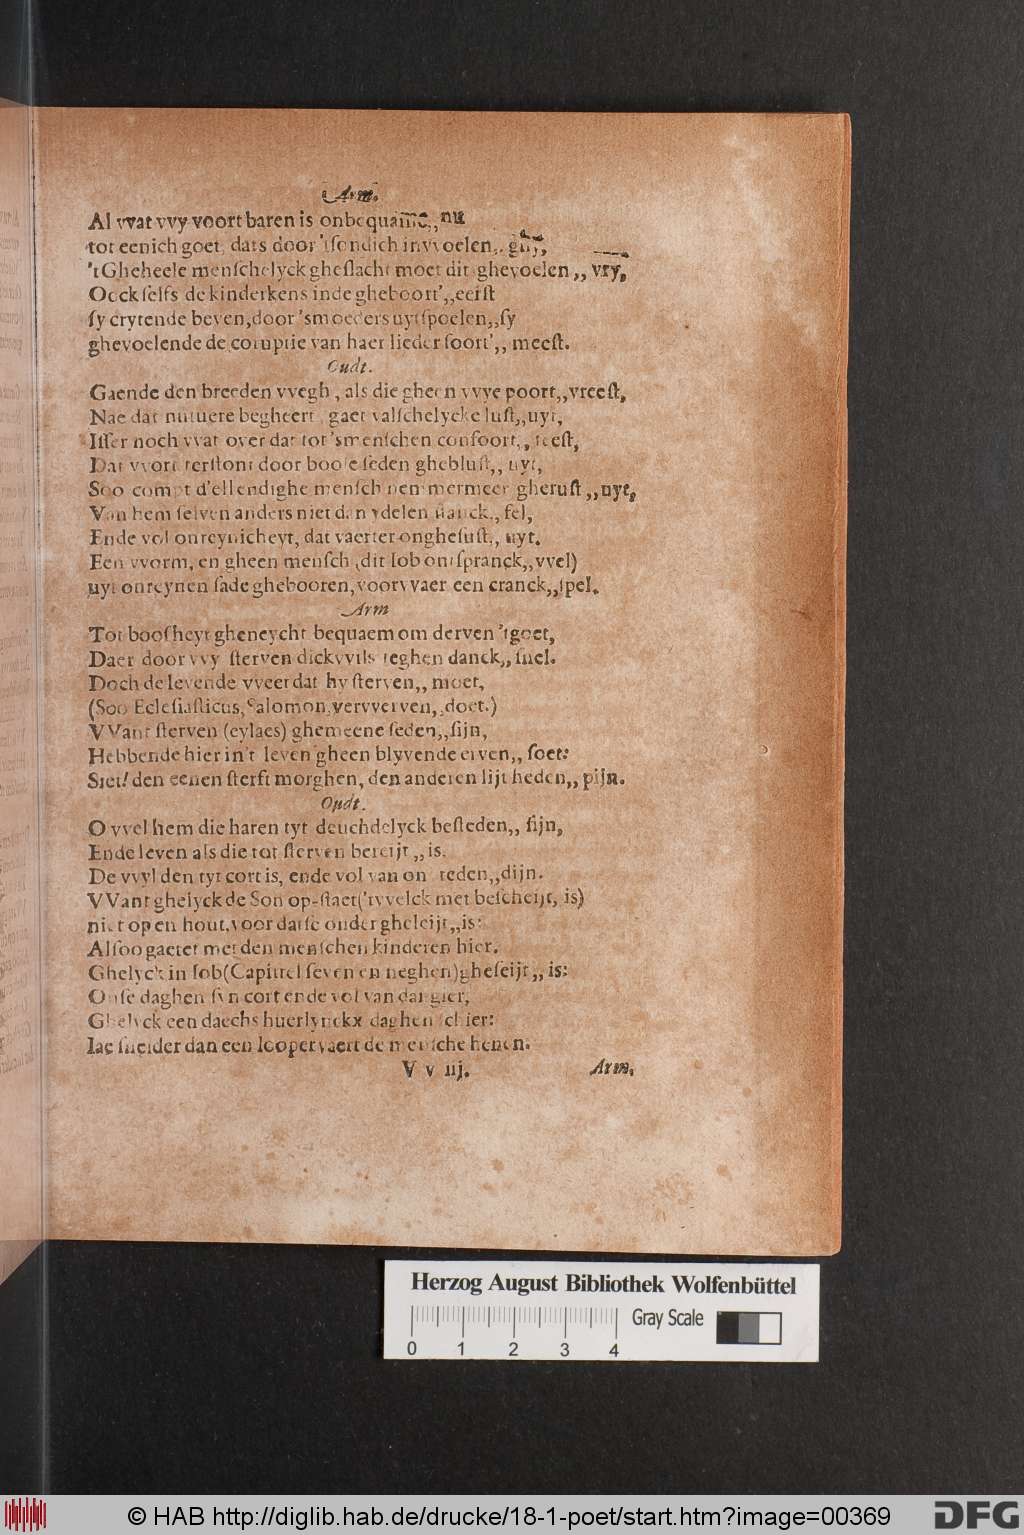 Arm.
Al vvat vvy voort baren is onbequame,, nu
tot eenich goet, dats door 'tsondich invvoelen,, ghy,
'tGheheele menſchelyck gheſlacht moet dit ghevoelen,, vry,
Oock ſelfs de kinderkens inde gheboort',, eerſt
ſy crytende beven, door 'smoeders uytſpoelen,, ſy
ghevoelende de coruptie van haer lieder ſoort',, meeſt.
Oudt.
Gaende den breeden vvegh, als die gheen vvye poort,, vreeſt,
Nae dat natuere begheert, gaet valſchelycke luſt,, uyt,
Iſſer noch vvat over dat tot 'smenſchen confoort,, teeſt,
Dat vvort terſtont door booſe ſeden ghebluſt,, uyt,
Soo compt d'ellendighe menſch nemmermeer gheruſt,, uyt,
Van hem ſelven anders niet dan ydelen ſtanck,, fel,
Ende vol onreynicheyt, dat vaerter ongheſuſt,, uyt.
Een vvorm, en gheen menſch (dit Iob ontſpranck,, vvel)
uyt onreynen ſade ghebooren, voorvvaer een cranck,, ſpel.
Arm
Tot boosheyt gheneycht bequaem om derven 'tgoet,
Daer door vvy ſterven dickvvils teghen danck,, ſnel.
Doch de levende vveet dat hy ſterven,, moet,
(Soo Ecleſiaſticus, Salomon, vervverven,, doet.)
VVant ſterven (eylaes) ghemeene ſeden,, ſijn,
Hebbende hier in't leven gheen blyvende erven,, ſoet:
Siet! den eenen ſterft morghen, den anderen lijt heden,, pijn.
Oudt.
O vvel hem die haren tyt deuchdelyck beſteden,, ſijn,
Ende leven als die tot ſterven bereijt,, is.
De vvyl den tyt cort is, ende vol van on reden,, dijn.
VVant ghelyck de Son op-ſtaet ('tvvelck met beſcheijt, is)
niet op en hout, voor datſe onder gheleijt,, is:
Alſoo gaetet met den menſchen kinderen hier.
Ghelyck in Iob (Capittel ſeven en neghen) gheſeijt,, is:
Onſe daghen ſyn cort ende vol van dangier,
Ghelyck een daechs huerlynckx daghen ſchier:
Iae ſnelder dan een looper vaert de menſche henen.
V v iij.
Arm.
Herzog August Bibliothek Wolfenbüttel
Gray Scale
0 1 2 3 4
© HAB http://diglib.hab.de/drucke/18-1-poet/start.htm?image=00369
DFG